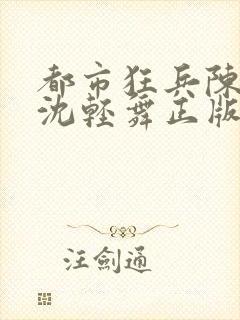 都市狂兵陳
沈輕舞正版
汪劍通